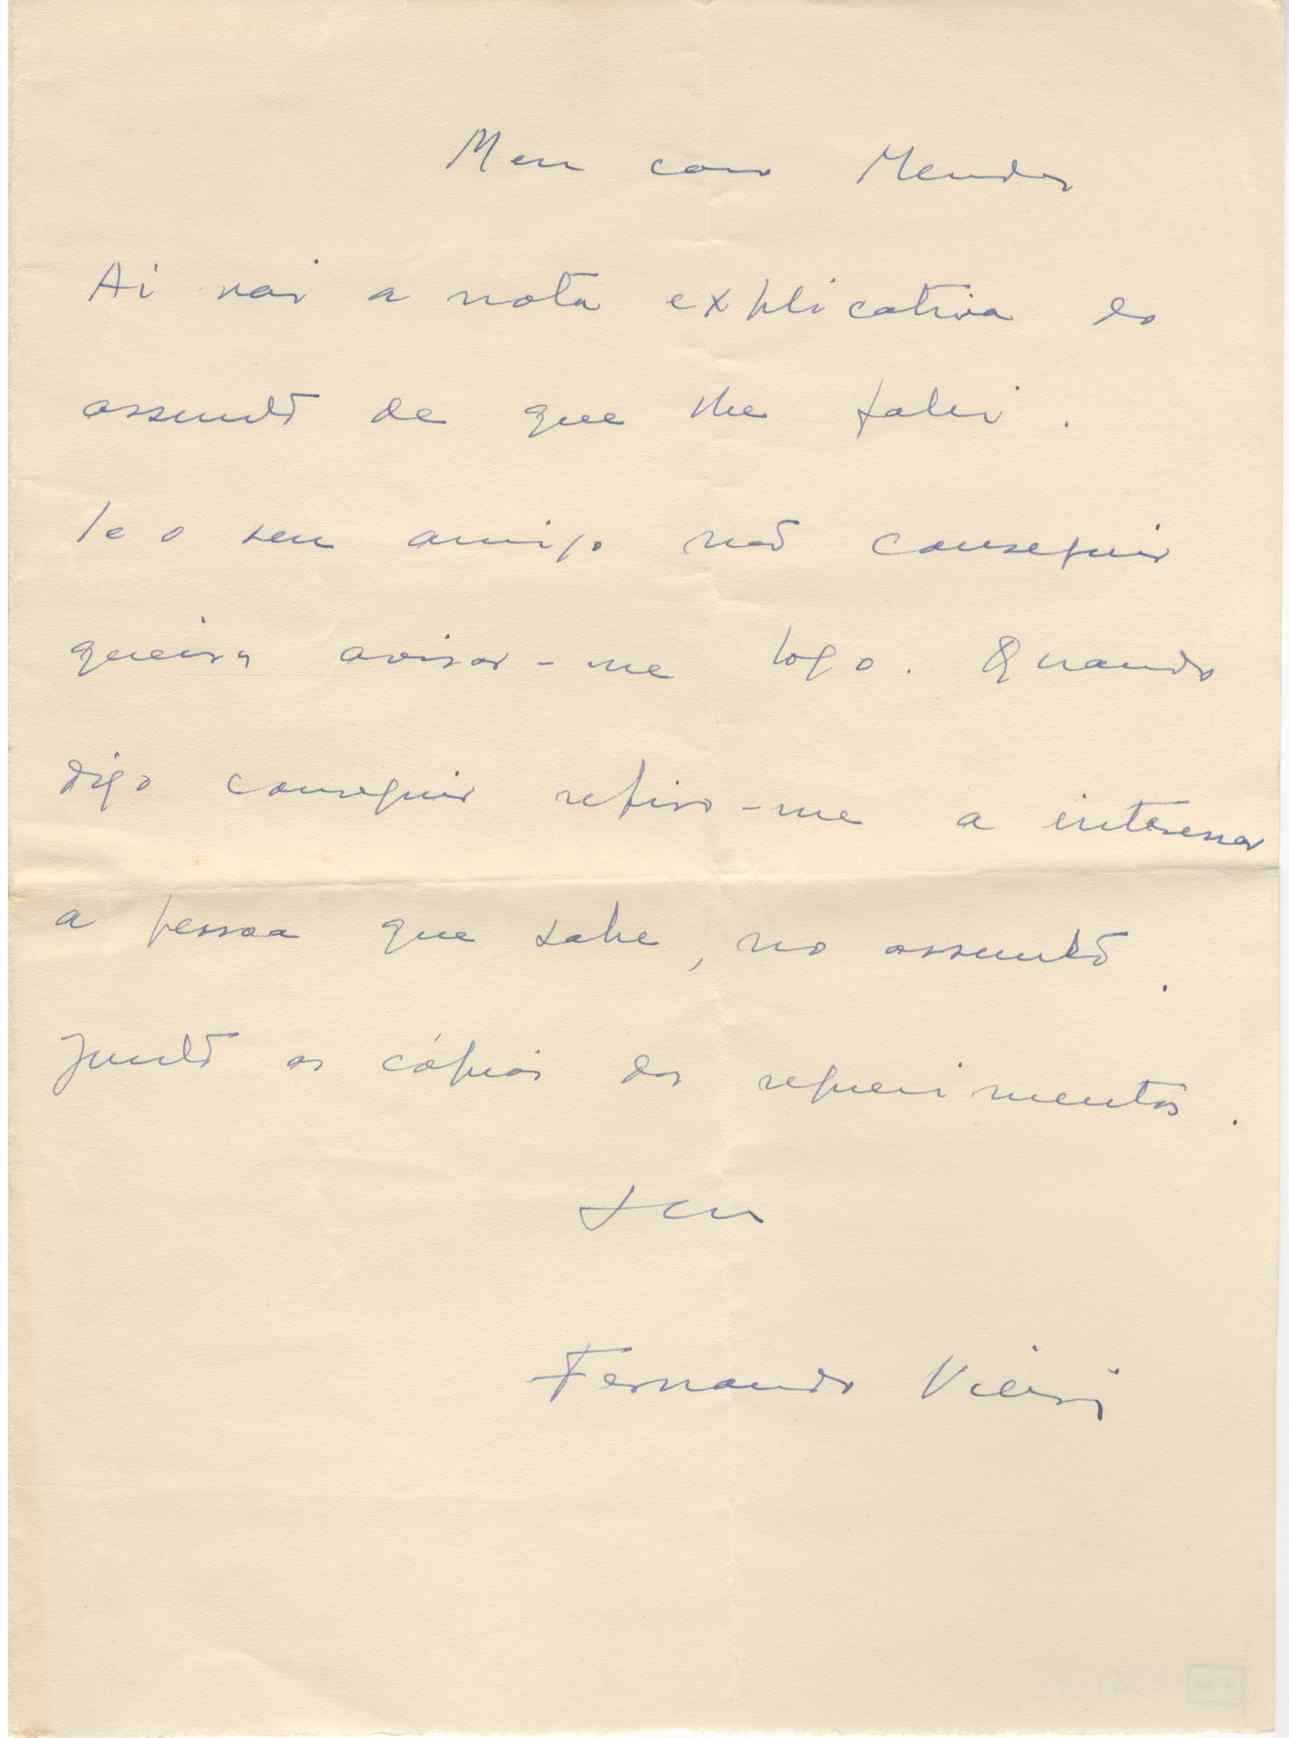 Meu caro Mendes
Ai vai a nota explicativa do
assunto de que lhe falei.
Se o seu amigo não conseguir
queira avisar-me logo. Quando
digo conseguir refiro-me a interessar
a pessoa que sabe, no assunto.
Junto as cópias dos requerimentos.
Seu
Fernando Vieira